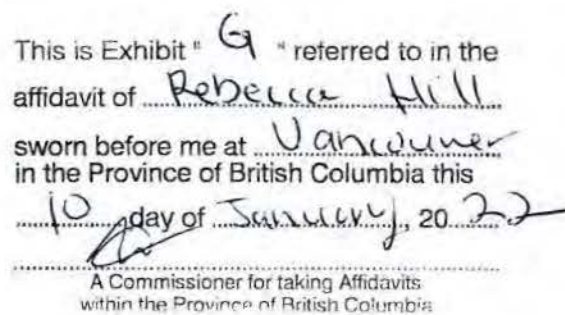 This is Exhibit " G " referred to in the
affidavit of Rebecca Hill
sworn before me at Vancouver
in the Province of British Columbia this
10 day of January, 20 22
A Commissioner for taking Affidavits
within the Province of British Columbia